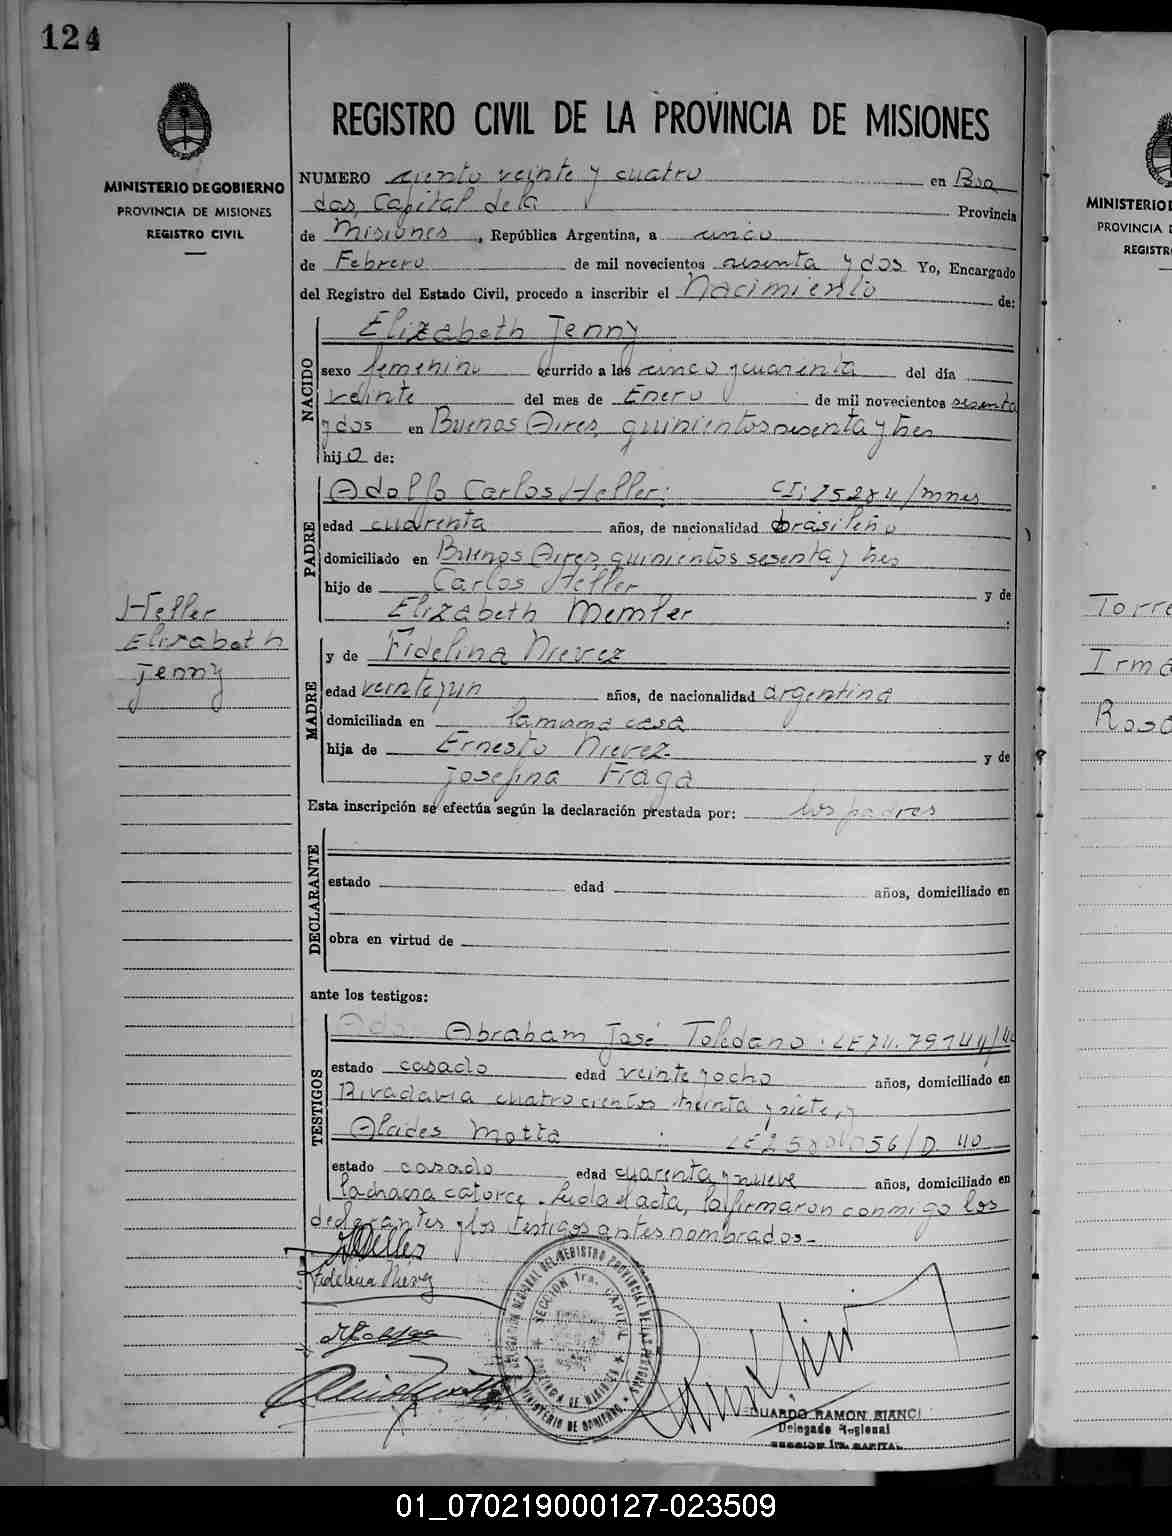 124
MINISTERIO DE GOBIERNO
PROVINCIA DE MISIONES
REGISTRO CIVIL
Heller
Elisabeth
Jenny
REGISTRO CIVIL DE LA PROVINCIA DE MISIONES
NUMERO ciento veinte y cuatro en Posa
das, Capital de la Provincia
de Misiones, República Argentina, a cinco
de Febrero de mil novecientos sesenta y dos Yo, Encargado
del Registro del Estado Civil, procedo a inscribir el Nacimiento de:
NACIDO
Elizabeth Jenny
sexo femenino ocurrido a las cinco y cuarenta del día
veinte del mes de Enero de mil novecientos sesenta
y dos en Buenos Aires, quinientos sesenta y tres
hija de:
PADRE
Adolfo Carlos Heller; CI: 25284/mnes
edad cuarenta años, de nacionalidad brasileño
domiciliado en Buenos Aires, quinientos sesenta y tres
hijo de Carlos Heller y de
Elizabeth Memler
MADRE
y de Fidelina Nievez
edad veinte y un años, de nacionalidad argentina
domiciliada en la misma casa
hija de Ernesto Nievez y de
Josefina Fraga
Esta inscripción se efectúa según la declaración prestada por: los padres
DECLARANTE
estado edad años, domiciliado en
obra en virtud de
ante los testigos:
TESTIGOS
Abraham José Toledano. LE 74.79144/44
estado casado edad veinte y ocho años, domiciliado en
Rivadavia cuatrocientos treinta y siete, y
Alcides Motta
estado casado edad cuarenta y nueve años, domiciliado en
la chacra catorce. Leida el acta, la firmaron conmigo los
declarantes y los testigos antes nombrados.-
Fidelina Nievez
SECCION 1ra. CAPITAL
PROVINCIA DE MISIONES
MINISTERIO DE GOBIERNO
EDUARDO RAMON BIANCI
Delegado Regional
SECCION 1ra. CAPITAL
MINISTERIO
PROVINCIA
REGISTR
Torre
Irma
Rosa
01_070219000127-023509